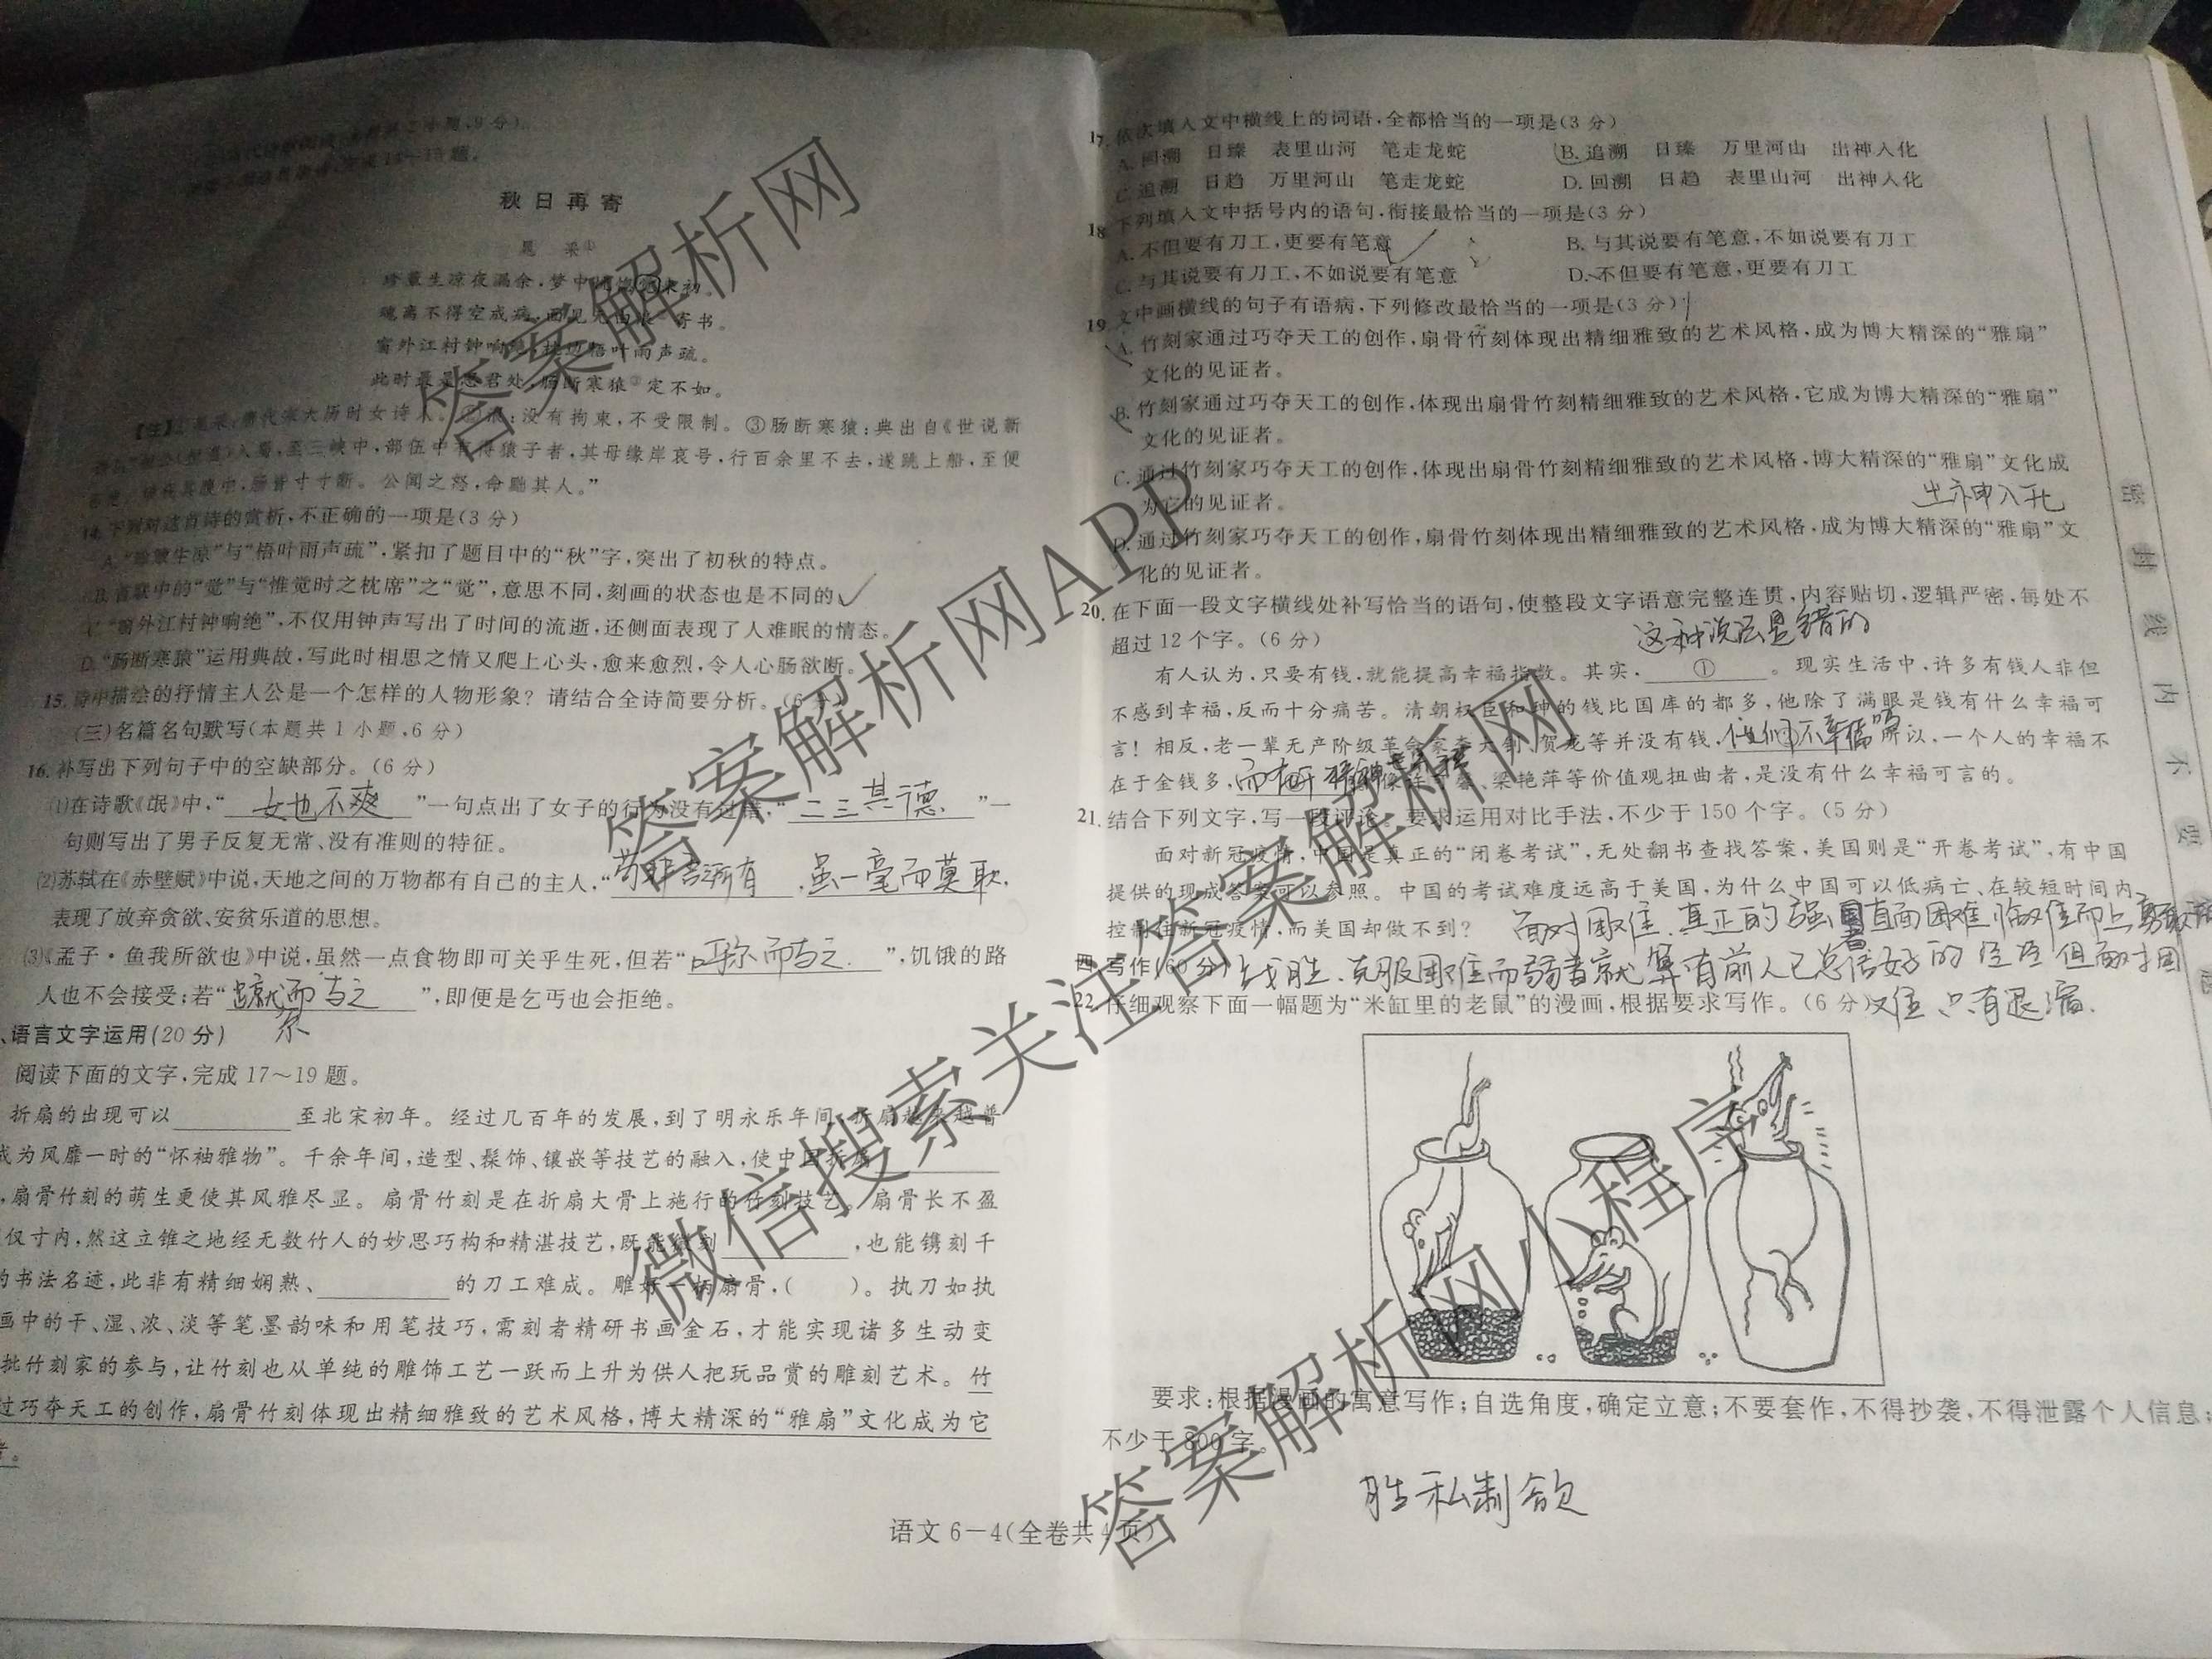 秋日再寄
晁采①
珍簟生凉夜漏余，梦中
魂离不得空成病，面见无由 寄书。
窗外江村钟响绝， 梧叶雨声疏。
此时最是思君处，肠断寒猿③定不如。
没有拘束，不受限制。③肠断寒猿：典出自《世说新
入蜀，至三峡中，部伍中有得猿子者，其母缘岸哀号，行百余里不去，遂跳上船，至便
肠皆寸寸断。公闻之怒，命黜其人。”
14.下列对这首诗的赏析，不正确的一项是(3分)
A.“珍簟生凉”与“梧叶雨声疏”，紧扣了题目中的“秋”字，突出了初秋的特点。
B.首联中的“觉”与“惟觉时之枕席”之“觉”，意思不同，刻画的状态也是不同的。
C.“窗外江村钟响绝”，不仅用钟声写出了时间的流逝，还侧面表现了人难眠的情态。
D.“肠断寒猿”运用典故，写此时相思之情又爬上心头，愈来愈烈，令人心肠欲断。
15.诗中描绘的抒情主人公是一个怎样的人物形象？请结合全诗简要分析。(6分)
(三)名篇名句默写(本题共1小题，6分)
16.补写出下列句子中的空缺部分。(6分)
(1)在诗歌《氓》中，“女也不爽”一句点出了女子的行为没有过错，“二三其德”一
句则写出了男子反复无常、没有准则的特征。
(2)苏轼在《赤壁赋》中说，天地之间的万物都有自己的主人，“苟非吾所有，虽一毫而莫取，
表现了放弃贪欲、安贫乐道的思想。
(3)《孟子·鱼我所欲也》中说，虽然一点食物即可关乎生死，但若“ 而与之”，饥饿的路
人也不会接受；若“蹴尔而与之”，即便是乞丐也会拒绝。
、语言文字运用(20分)
阅读下面的文字，完成17～19题。
折扇的出现可以 至北宋初年。经过几百年的发展，到了明永乐年间，折扇越来越普
成为风靡一时的“怀袖雅物”。千余年间，造型、髹饰、镶嵌等技艺的融入，使中国折扇
，扇骨竹刻的萌生更使其风雅尽显。扇骨竹刻是在折扇大骨上施行的竹刻技艺。扇骨长不盈
仅寸内，然这立锥之地经无数竹人的妙思巧构和精湛技艺，既能微刻 ，也能镌刻千
的书法名迹，此非有精细娴熟、 的刀工难成。雕好一柄扇骨，( )。执刀如执
画中的干、湿、浓、淡等笔墨韵味和用笔技巧，需刻者精研书画金石，才能实现诸多生动变
批竹刻家的参与，让竹刻也从单纯的雕饰工艺一跃而上升为供人把玩品赏的雕刻艺术。竹
过巧夺天工的创作，扇骨竹刻体现出精细雅致的艺术风格，博大精深的“雅扇”文化成为它
者。
17.依次填入文中横线上的词语，全都恰当的一项是(3分)
A.回溯 日臻 表里山河 笔走龙蛇 B.追溯 日臻 万里河山 出神入化
C.追溯 日趋 万里河山 笔走龙蛇 D.回溯 日趋 表里山河 出神入化
18.下列填入文中括号内的语句，衔接最恰当的一项是(3分)
A.不但要有刀工，更要有笔意 B.与其说要有笔意，不如说要有刀工
C.与其说要有刀工，不如说要有笔意 D.不但要有笔意，更要有刀工
19.文中画横线的句子有语病，下列修改最恰当的一项是(3分)
A.竹刻家通过巧夺天工的创作，扇骨竹刻体现出精细雅致的艺术风格，成为博大精深的“雅扇”
文化的见证者。
B.竹刻家通过巧夺天工的创作，体现出扇骨竹刻精细雅致的艺术风格，它成为博大精深的“雅扇”
文化的见证者。
C.通过竹刻家巧夺天工的创作，体现出扇骨竹刻精细雅致的艺术风格，博大精深的“雅扇”文化成
为它的见证者。
出神入化
D.通过竹刻家巧夺天工的创作，扇骨竹刻体现出精细雅致的艺术风格，成为博大精深的“雅扇”文
化的见证者。
20.在下面一段文字横线处补写恰当的语句，使整段文字语意完整连贯，内容贴切，逻辑严密，每处不
超过12个字。(6分)
这种说法是错的
有人认为，只要有钱，就能提高幸福指数。其实，①。现实生活中，许多有钱人非但
不感到幸福，反而十分痛苦。清朝权臣和珅的钱比国库的都多，他除了满眼是钱有什么幸福可
言！相反，老一辈无产阶级革命家李大钊、贺龙等并没有钱，他们不幸福吗 所以，一个人的幸福不
在于金钱多， 梁艳萍等价值观扭曲者，是没有什么幸福可言的。
21.结合下列文字，写一段评论。要求运用对比手法，不少于150个字。(5分)
面对新冠疫情，中国是真正的“闭卷考试”，无处翻书查找答案，美国则是“开卷考试”，有中国
提供的现成答案可以参照。中国的考试难度远高于美国，为什么中国可以低病亡、在较短时间内
控制住新冠疫情，而美国却做不到？
面对困难，真正的强者直面困难
战胜、克服困难而弱者就算有前人已总结好的 但面对困
难 只有退缩．
四、写作(60分)
22.仔细观察下面一幅题为“米缸里的老鼠”的漫画，根据要求写作。(6分)
要求：根据漫画的寓意写作；自选角度，确定立意；不要套作，不得抄袭，不得泄露个人信息；
不少于800字。
胜私制欲
语文6－4(全卷共4页)
密封线内不要
答案解析网
答案解析网APP
微信搜索关注答案解析网
答案解析网小程序